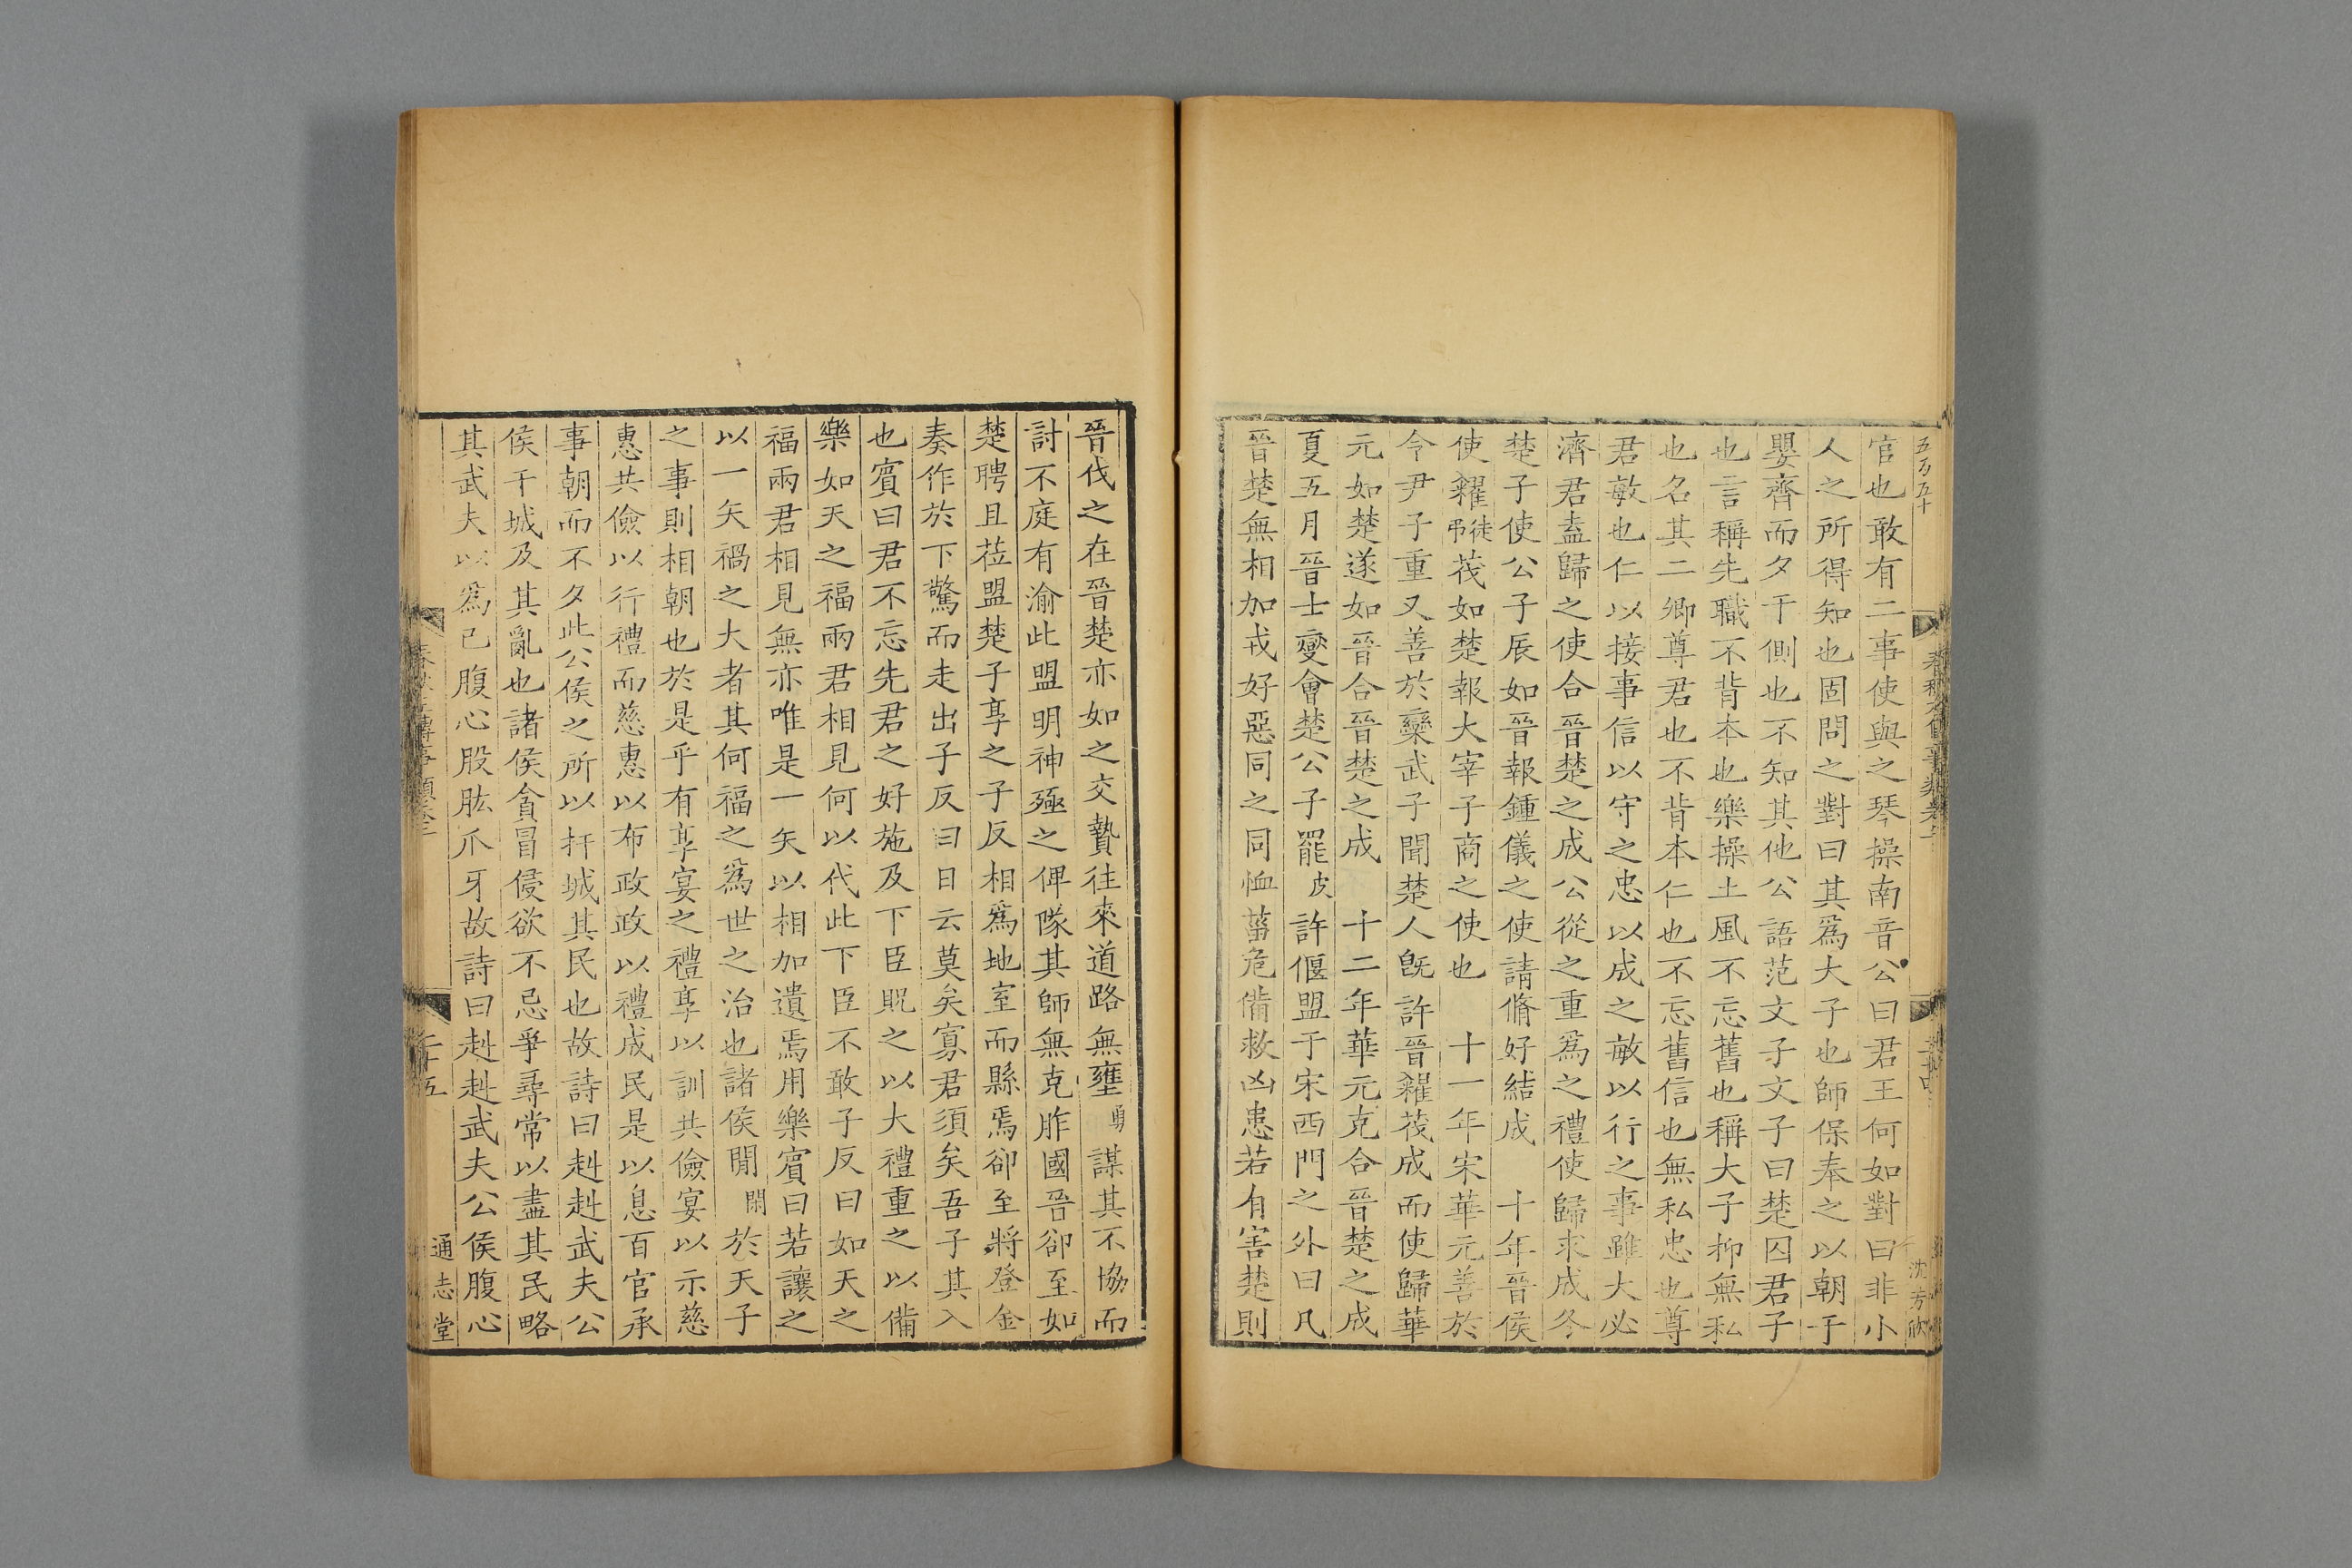 五百五十
官也敢有二事使與之琴操南音公曰君王何如對曰非小
人之所得知也固問之對曰其爲大子也師保奉之以朝于
嬰齊而夕于側也不知其他公語范文子文子曰楚囚君子
也言稱先職不背本也樂操土風不忘舊也稱大子抑無私
也名其二卿尊君也不背本仁也不忘舊信也無私忠也尊
君敏也仁以接事信以守之忠以成之敏以行之事雖大必
濟君盍歸之使合晉楚之成公從之重爲之禮使歸求成冬
楚子使公子辰如晉報鍾儀之使請脩好結成 十年晉侯
使糴徒弔茷如楚報大宰子商之使也 十一年宋華元善於
令尹子重又善於欒武子聞楚人既許晉糴茷成而使歸華
元如楚遂如晉合晉楚之成 十二年華元克合晉楚之成
夏五月晉士燮會楚公子罷皮許偃盟于宋西門之外曰凡
晉楚無相加戎好惡同之同恤菑危備救凶患若有害楚則
沈芳欣
晉伐之在晉楚亦如之交贄往來道路無壅勇謀其不協而
討不庭有渝此盟明神殛之俾隊其師無克胙國晉郤至如
楚聘且莅盟楚子享之子反相爲地室而縣焉郤至將登金
奏作於下驚而走出子反曰日云莫矣寡君須矣吾子其入
也賓曰君不忘先君之好施及下臣貺之以大禮重之以備
樂如天之福兩君相見何以代此下臣不敢子反曰如天之
福兩君相見無亦唯是一矢以相加遺焉用樂賓曰若讓之
以一矢禍之大者其何福之爲世之治也諸侯閒閑於天子
之事則相朝也於是乎有享宴之禮享以訓共儉宴以示慈
惠共儉以行禮而慈惠以布政政以禮成民是以息百官承
事朝而不夕此公侯之所以扞城其民也故詩曰赳赳武夫公
侯干城及其亂也諸侯貪冒侵欲不忌爭尋常以盡其民略
其武夫以爲己腹心股肱爪牙故詩曰赳赳武夫公侯腹心
二十五
通志堂